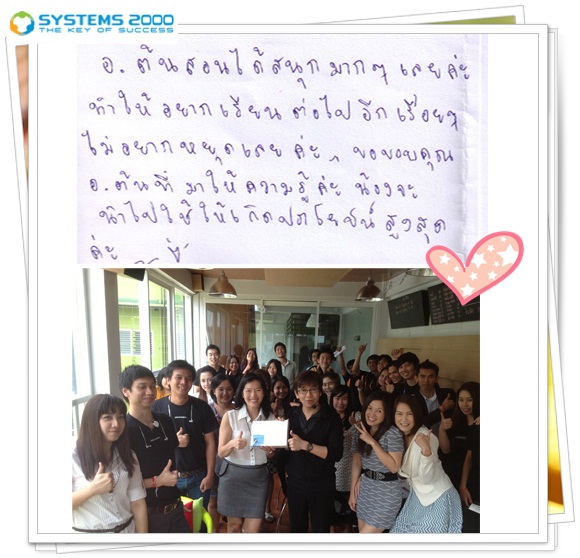 SYSTEMS 2000
THE KEY OF SUCCESS
อ. ต้นสอนได้สนุกมากๆ เลยค่ะ
ทำให้อยากเรียนต่อไปอีกเรื่อยๆ
ไม่อยากหยุดเลยค่ะ ขอบขอบคุณ
อ.ต้นที่มาให้ความรู้ค่ะ น้องจะ
นำไปใช้ให้เกิดประโยชน์สูงสุด
ค่ะ